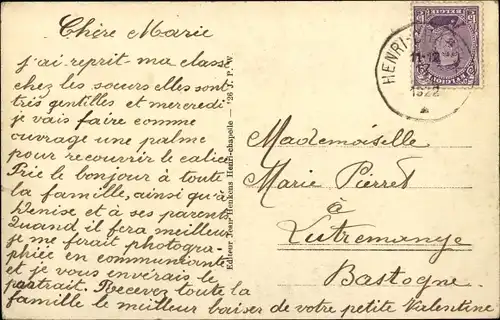 Chère Marie
j'ai reprit ma classe
chez les sœurs elles sont
très gentilles et mercredi
je vais faire comme
ouvrage une palme
pour recouvrir le calice
Prie le bonjour à toute
la famille, ainsi qu'à
Denise et à ses parents
Quand il fera meilleur
je me ferait photogra-
phiée en communiante
et je vous envérais le
portrait. Recevez toute la
famille le meilleur baiser de votre petite Valentine
Editeur Jean Henkens Henri-chapelle — '26 J. P. W.
HENRI-
11-12
1922
Mademoiselle
Marie Pierret
à
Lutremange
Bastogne